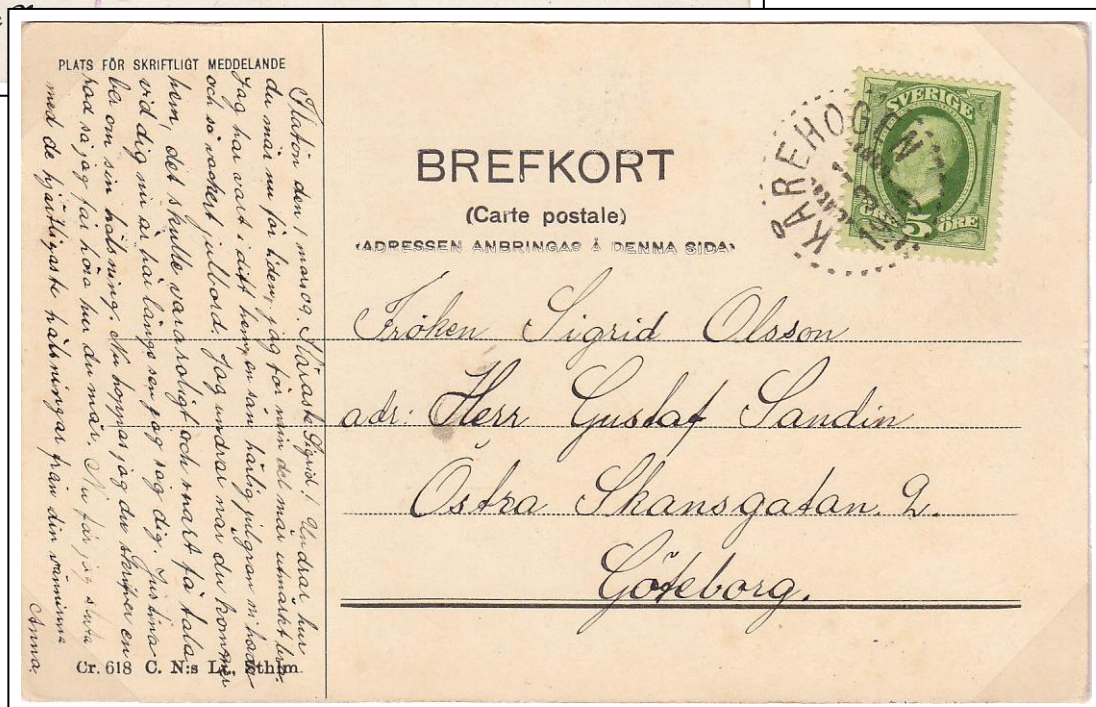 PLATS FÖR SKRIFTLIGT MEDDELANDE
Slätön den 1 mars 09. Käraste Sigrid! Undrar hur
du mår nu för tiden, jag för min del mår utmärkt bra.
Jag har vart i ditt hem, en sån härlig julgran ni hade
och så vackert julbord. Jag undrar när du kommer
hem, det skulle vara roligt och snart få tala
vid dig nu är här länge sen jag såg dig. Justina
ber om sin hälsning. Nu hoppas jag du skrifver en
rad så jag får höra hur du mår. Nu får jag sluta
med de hjärtligaste hälsningar från din väninna
Anna.
Cr. 618 C. N:s Sthlm.
BREFKORT
(Carte postale)
(ADRESSEN ANBRINGAS Å DENNA SIDA)
KÅREHOGEN
SVERIGE
5 ÖRE
Fröken Sigrid Olsson
adr: Herr Gustaf Sandin
Östra Skansgatan. 2.
Göteborg.